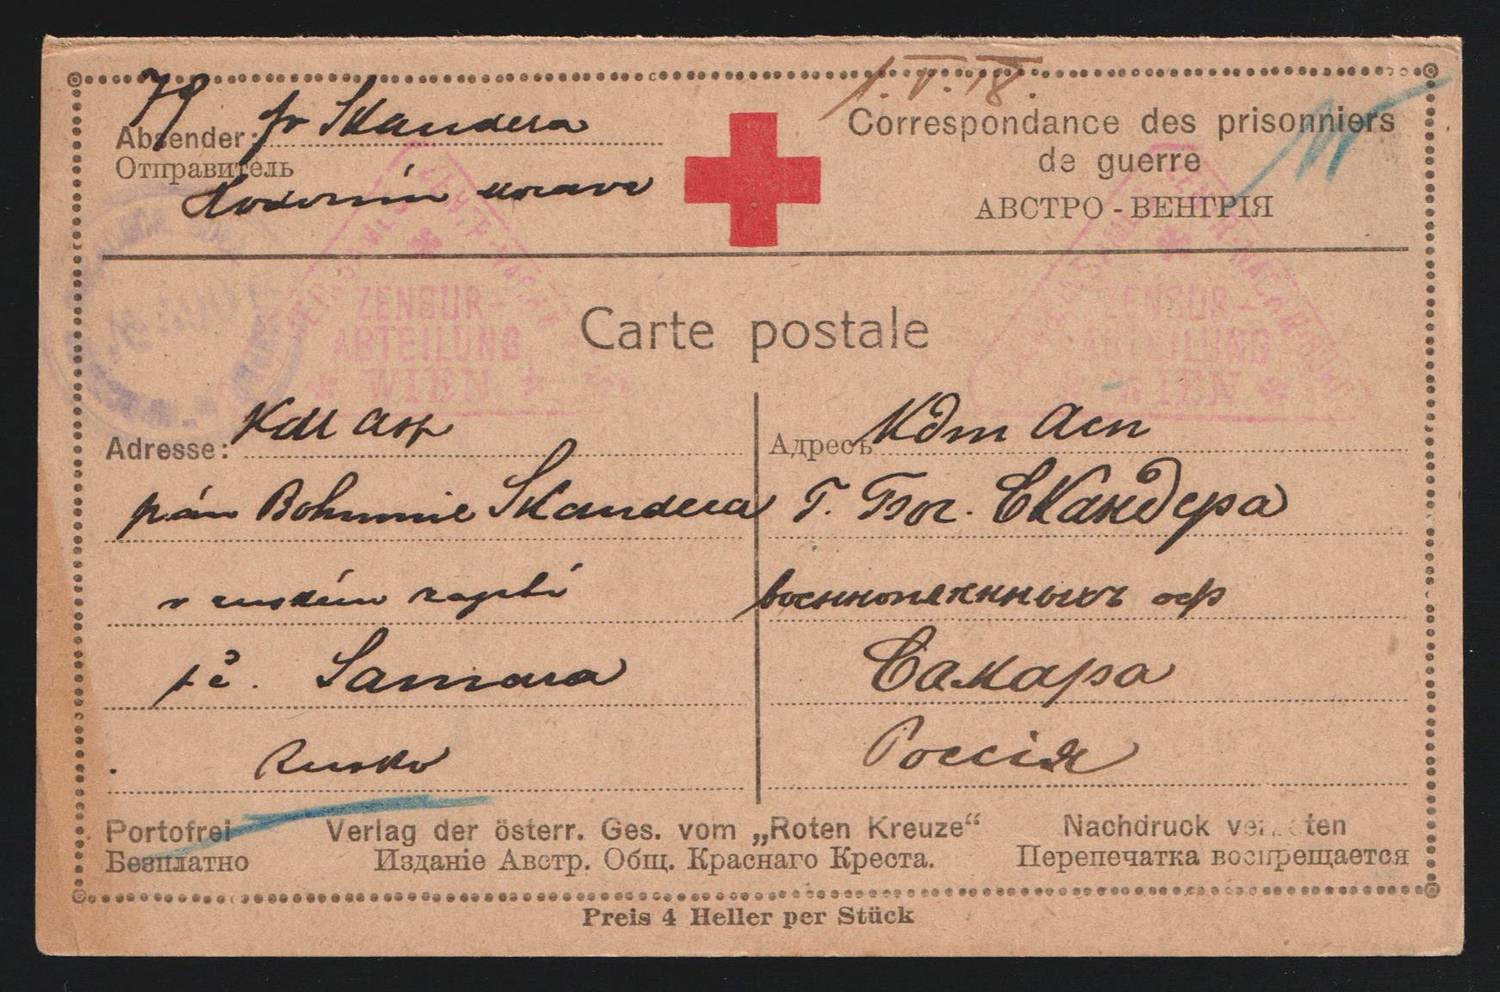 79
1.V.18.
Absender: Fr Skandera
Отправитель
Hodonín Morava
Correspondance des prisonniers
de guerre
АВСТРО-ВЕНГРІЯ
ZENSUR-
ABTEILUNG
WIEN
ZENSUR-
ABTEILUNG
WIEN
Carte postale
Adresse: Kdt Asp
pán Bohumil Skandera
v ruském zajetí
Samara
Rusko
Адресъ Кдт Асп
Г. Бог. Скандера
военнопленныхъ оф
Самара
Россія
Portofrei
Безплатно
Verlag der österr. Ges. vom „Roten Kreuze“
Изданіе Австр. Общ. Краснаго Креста.
Nachdruck ver ten
Перепечатка воспрещается
Preis 4 Heller per Stück